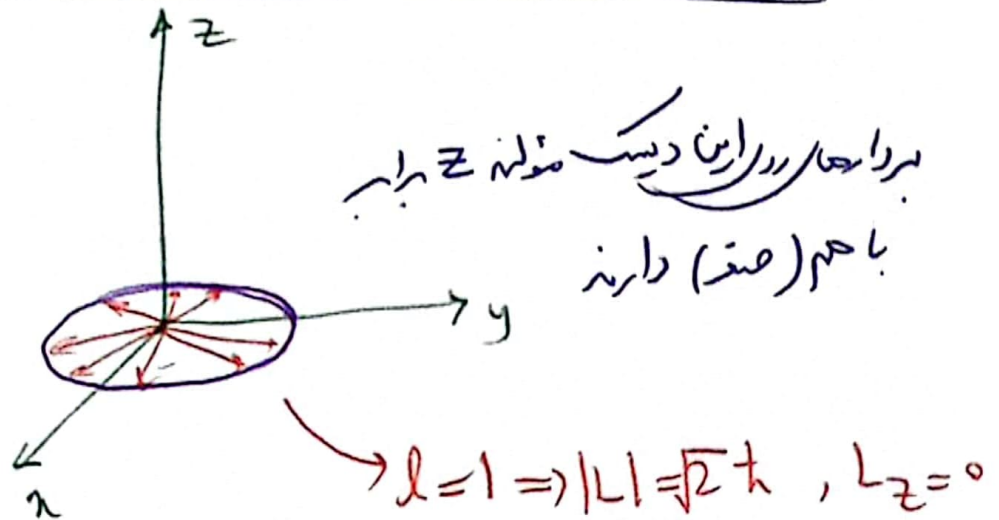 z
بردارهای روی این دیسک مؤلفه z برابر
با هم (صفر) دارند
y
x
l = 1 ⇒ |L| = √2 ħ , L_z = 0